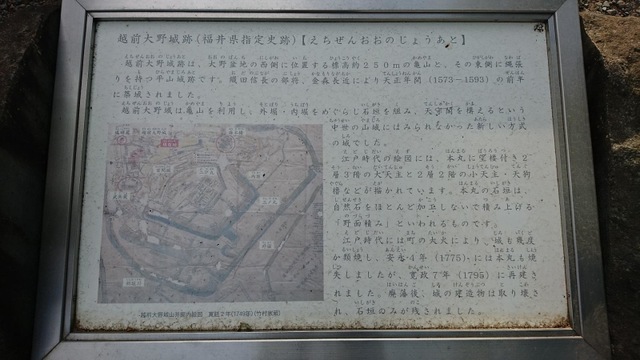 越前大野城跡(福井県指定史跡)【えちぜんおおのじょうあと】
越前大野城跡は、大野盆地の西側に位置する標高約250mの亀山と、その東側に縄張
りを持つ平山城跡です。織田信長の部将、金森長近により天正年間(1573-1593)の前半
に築城されました。
越前大野城は亀山を利用し、外堀・内堀をめぐらし石垣を組み、天守閣を構えるという
中世の山城にはみられなかった新しい方式
の城でした。
江戸時代の絵図には、本丸に望楼付き2
層3階の大天主と2層2階の小天主・天狗
櫓などが描かれています。本丸の石垣は、
自然石をほとんど加工しないで積み上げる
「野面積み」といわれるものです。
江戸時代には町の大火により、城も幾度
か類焼し、安永4年(1775)には本丸も焼
失しましたが、寛政7年(1795)に再建さ
れました。廃藩後、城の建造物は取り壊さ
れ、石垣のみが残されました。